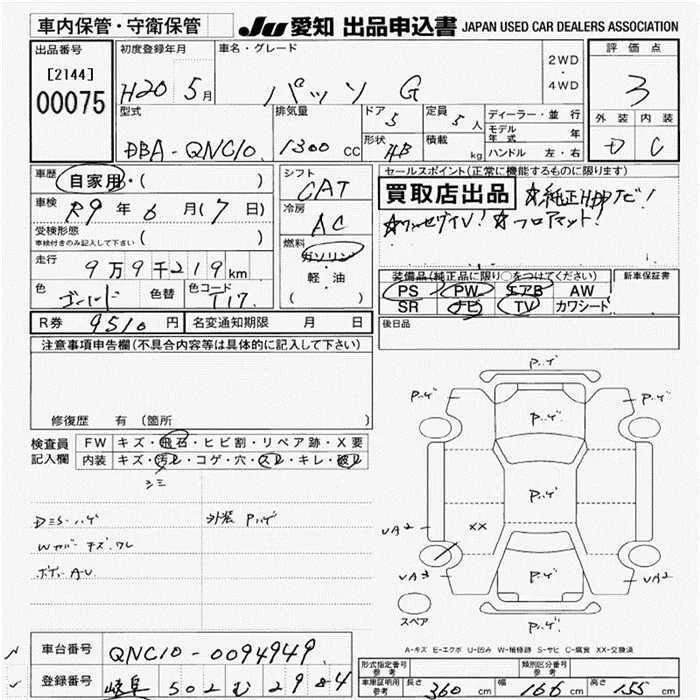 車内保管・守衛保管
JU 愛知 出品申込書 JAPAN USED CAR DEALERS ASSOCIATION
出品番号
[2144]
00075
初度登録年月
H20 5月
車名・グレード
パッソ G
2WD
・
4WD
評価点
3
外装 内装
D C
型式
DBA-QNC10
排気量
1300 cc
ドア 5
形状 HB
定員 5人
積載 kg
ディーラー・並行
モデル年式 年
ハンドル 左・右
車歴
自家用・( )
車検
R9年6月(7日)
受検形態
車検付きのみ記入して下さい ( )
走行
9万9千219km
色
ゴールド
色替
色コード
T17
シフト
CAT
冷房
AC
燃料
ガソリン
・
軽・油
( )
セールスポイント(正常に機能するものに限ります)
買取店出品 ☆純正HDDナビ!
☆ワンセグTV! ☆フロアマット!
装備品(純正品に限り○をつけてください)
PS PW エアB AW
SR ナビ TV カワシート
新車保証書
後日品
R券 9510円
名変通知期限 月 日
注意事項申告欄(不具合内容等は具体的に記入して下さい)
修復歴 有 (箇所 )
検査員
記入欄
FW キズ・飛石・ヒビ割・リペア跡・X要
内装 キズ・汚れ・コゲ・穴・スレ・キレ・破れ
シミ
外装 Pハゲ
Wカバー キズ・ワレ
ボディ AU
Pハゲ
Pハゲ
Pハゲ
Pハゲ
Pハゲ
UA2
XX
UA3
Pハゲ
UA2
Pハゲ
スペア
A-キズ E-エクボ U-凹み W-補修跡 S-サビ C-腐食 XX-交換済
車台番号
QNC10-0094949
登録番号
岐阜 502 む 2984
形式指定番号
参考
類別区分番号
参考
車庫証明用
参考
長さ 360 cm 幅 166 cm 高さ 155 cm